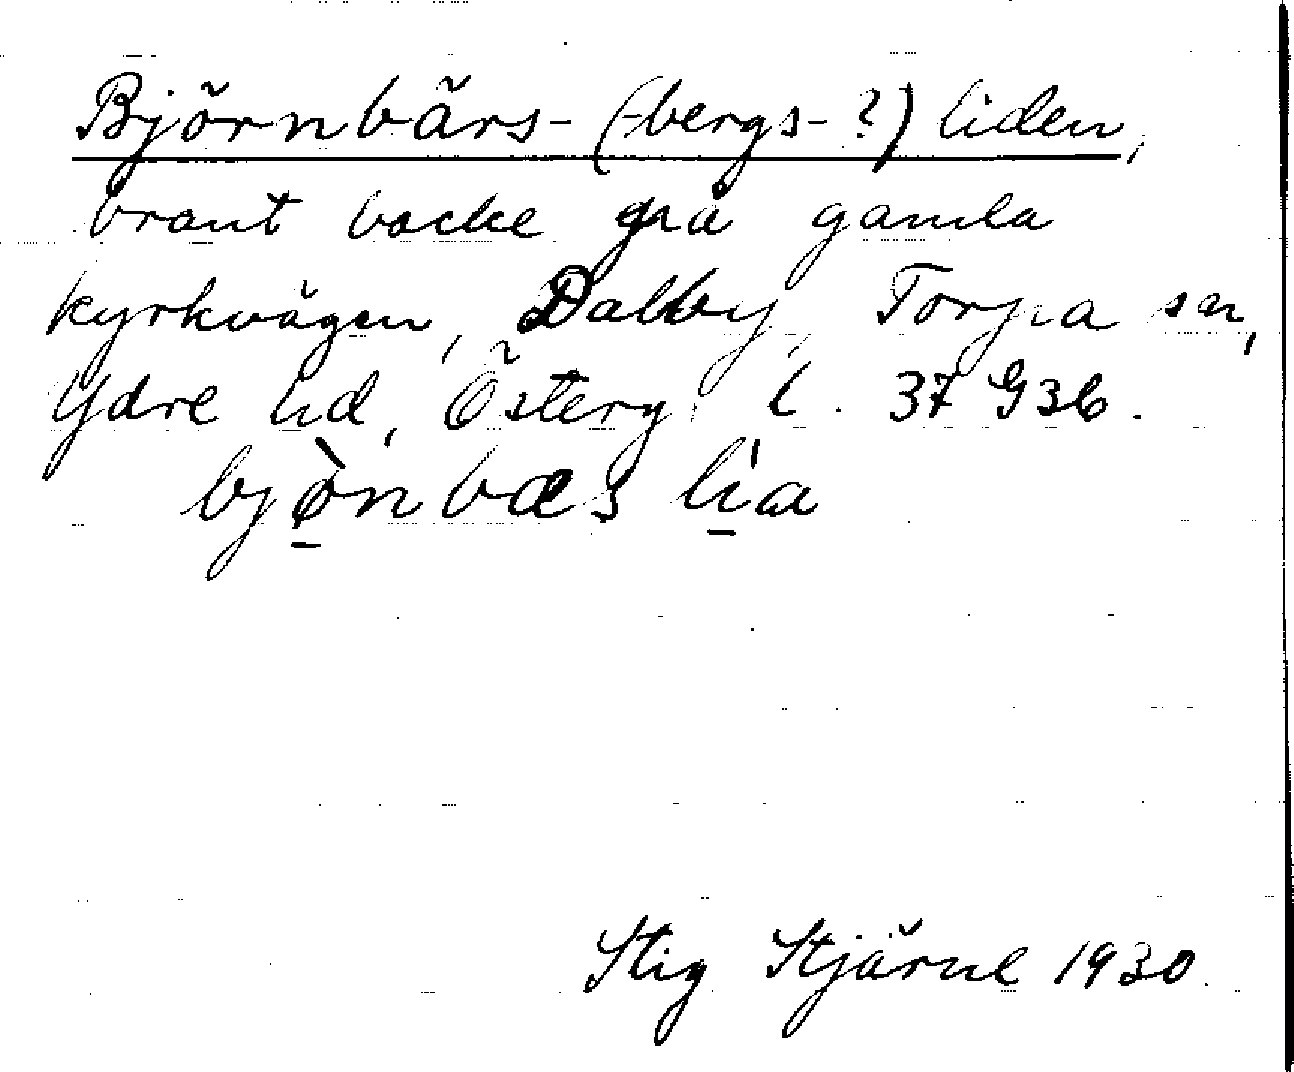 Björnbärs- (-bergs-?) liden,
brant backe på gamla
kyrkvägen, Dalby, Torpa sn,
Ydre hd, Österg. l. 37 G36.
bjø̀nbæs lia
Stig Stjärne 1930.